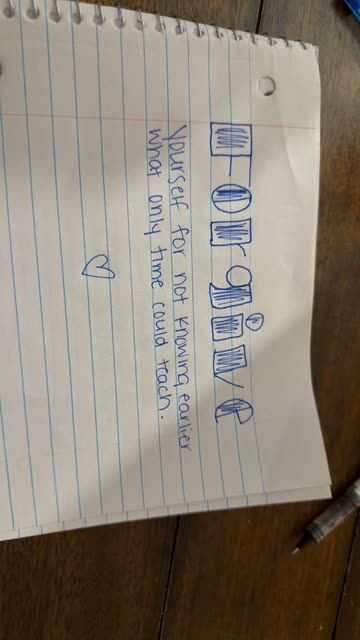 Forgive
yourself for not knowing earlier
what only time could teach.